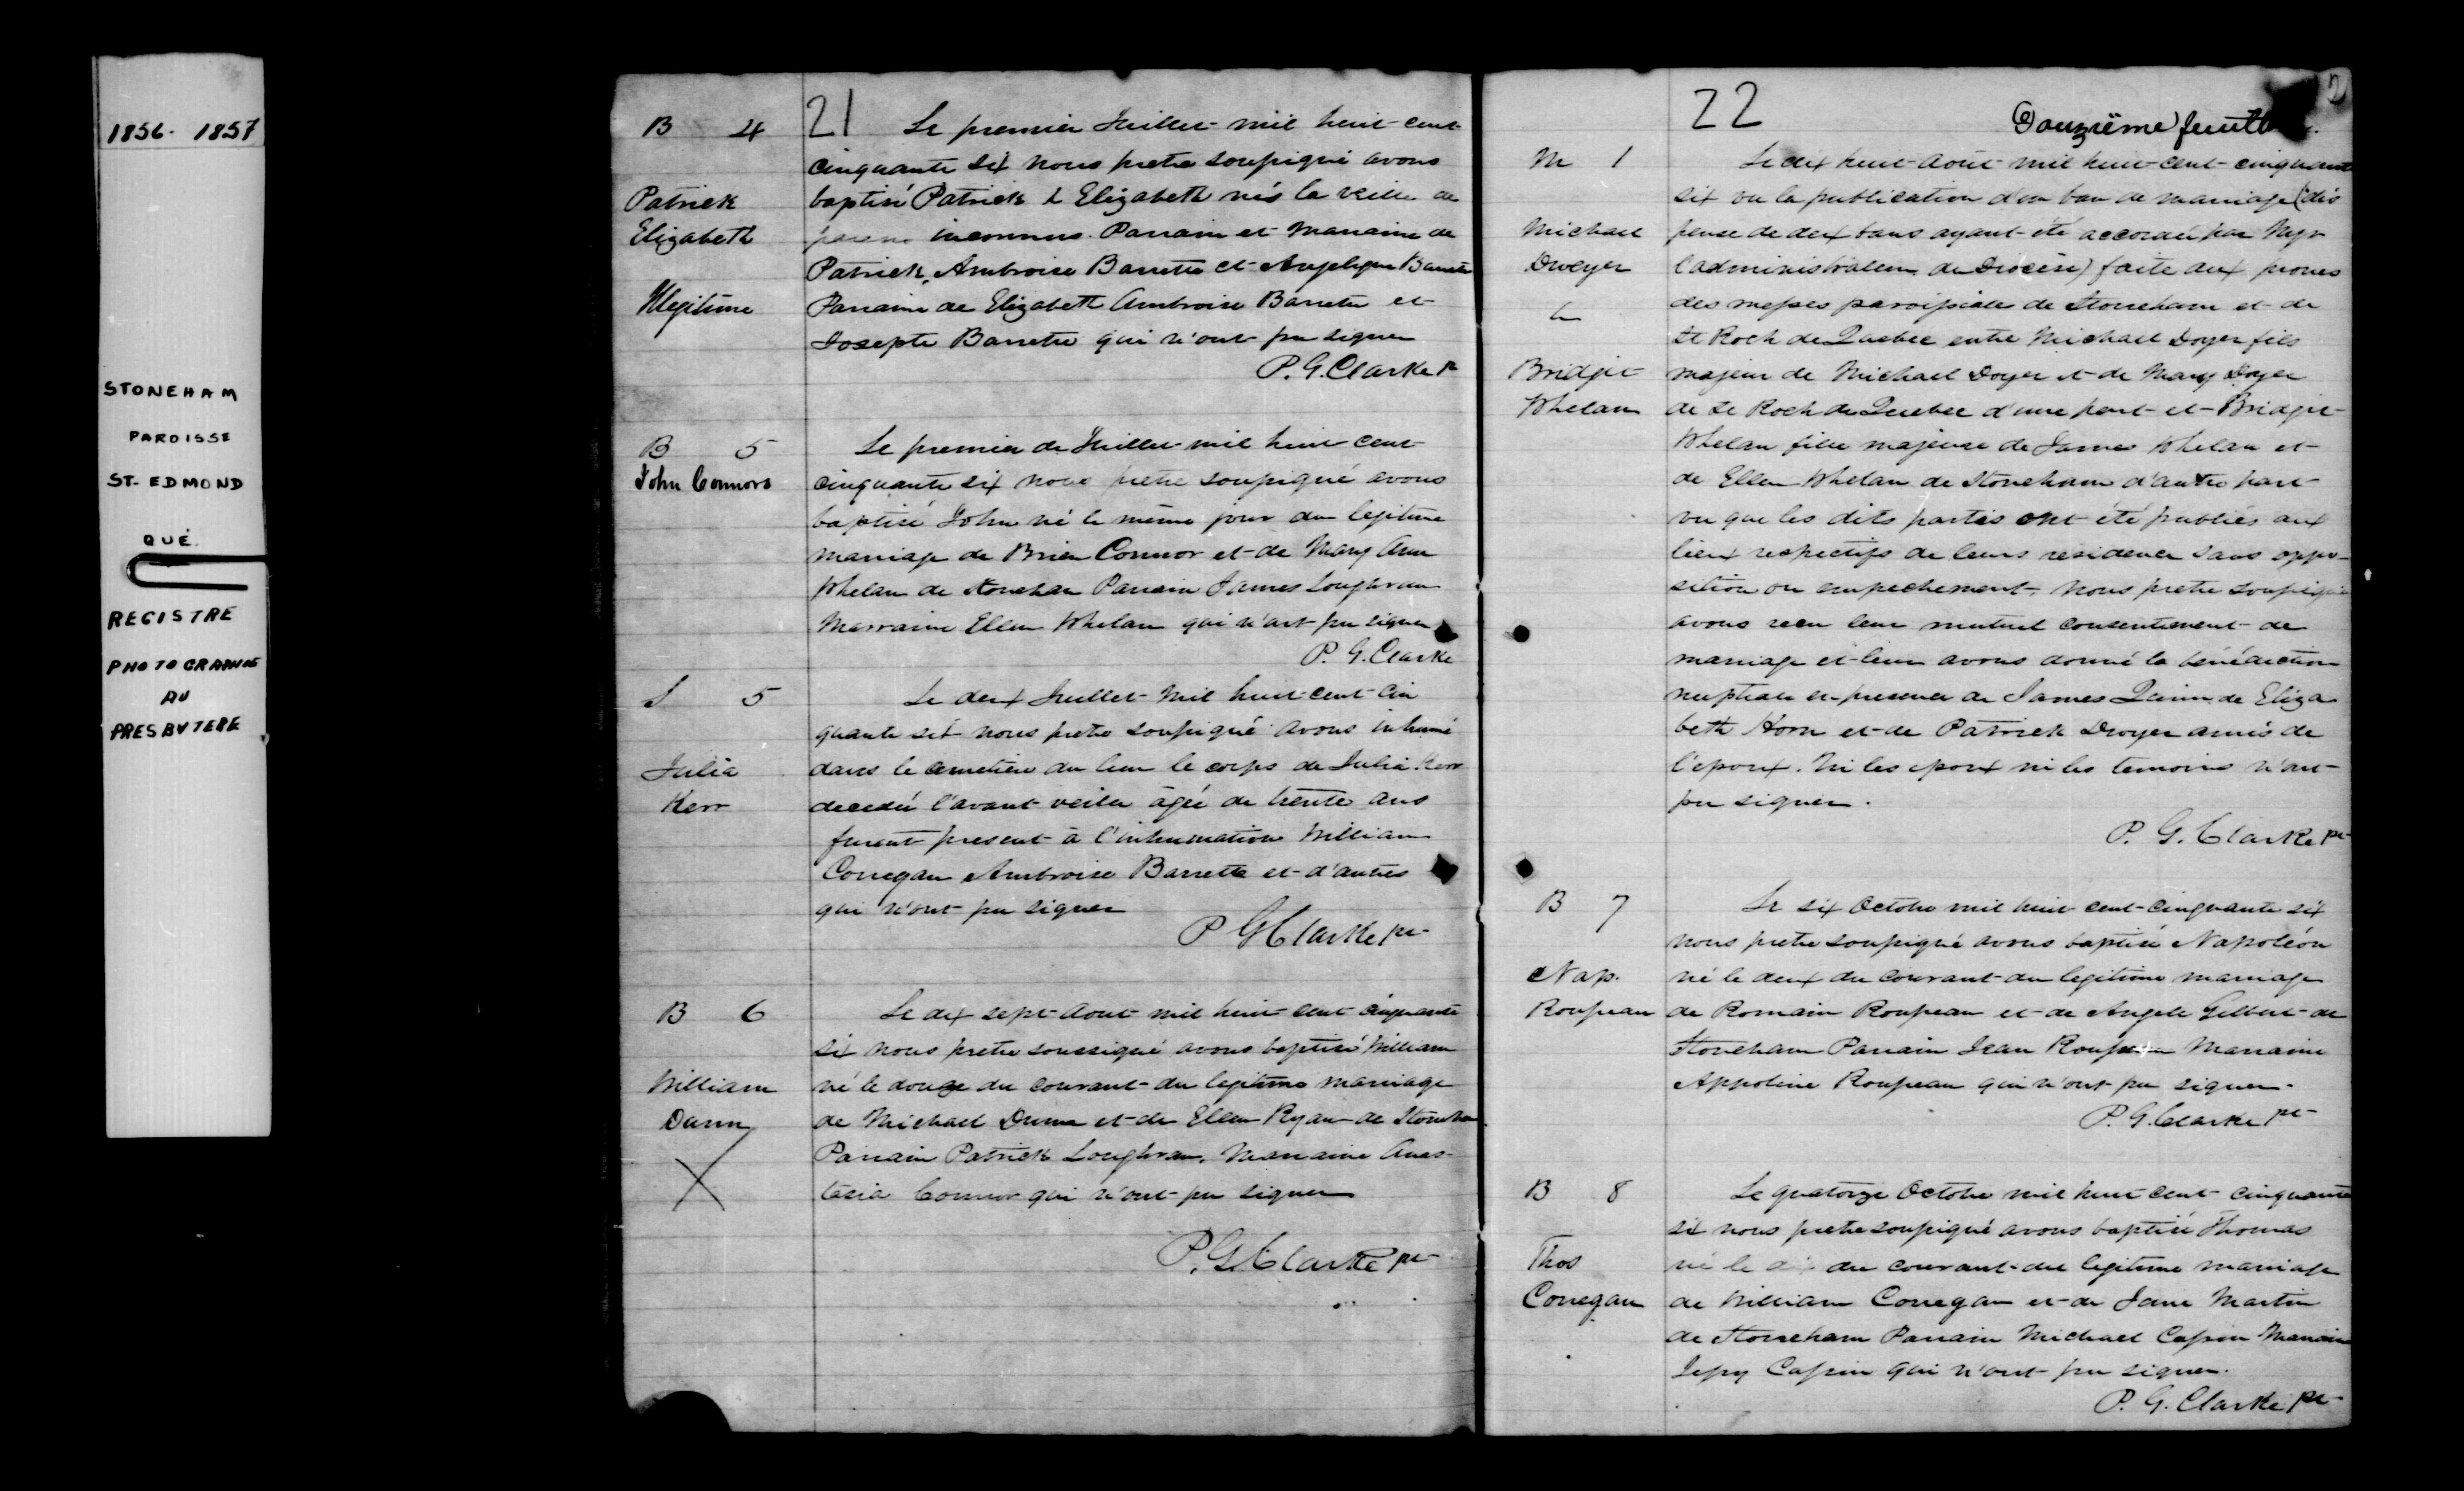 1856-1857
STONEHAM
PAROISSE
ST-EDMOND
QUÉ.
REGISTRE
PHOTOGRAPHIE
AU
PRESBYTERE
21
B 4
Patrick
Elizabeth
Illegitime
Le premier Juillet mil huit cent
cinquante six nous pretre soussigné avons
baptisé Patrick & Elizabeth nés la veille de
parens inconnus. Parrain et Marraine de
Patrick, Ambroise Barrette et Angelique Barrette
Parrain de Elizabeth Ambroise Barrette et
Josepte Barrette qui n'ont pu signer
P. G. Clarke pr
B 5
John Connors
Le premier de Juillet mil huit cent
cinquante six nous pretre soussigné avons
baptisé John né le même jour du legitime
mariage de Brien Connor et de Mary Ann
Whelan de Stoneham Parrain James Loughran
Marraine Ellen Whelan qui n'ont pu signer
P. G. Clarke
S 5
Julia
Kerr
Le deux Juillet mil huit cent cin
quante six nous pretre soussigné avons inhumé
dans le cimetiere du lieu le corps de Julia Kerr
decedée l'avant veille âgée de trente ans
furent present à l'inhumation William
Corregan Ambroise Barrette et d'autres
qui n'ont pu signer
P G Clarke pr
B 6
William
Dunn
X
Le dix sept Aout mil huit cent cinquante
six nous pretre soussigné avons baptisé William
né le douze du courant du legitime mariage
de Michael Dunn et de Ellen Ryan de Stoneham
Parrain Patrick Loughran, Marraine Anas-
tasia Connor qui n'ont pu signer
P. G. Clarke pr
22
Douzième feuillet.
M 1
Michael
Dwyer
&
Bridget
Whelan
Le dix huit Août mil huit cent cinquante
six vu la publication d'un ban de mariage (dis
pense de deux bans ayant été accordée par Mgr
l'administrateur du Diocèse) faite aux prones
des messes paroissiale de Stoneham et de
St Roch de Quebec entre Michael Doyer fils
majeur de Michael Doyer et de Mary Doyer
de St Roch de Quebec d'une part et Bridget
Whelan fille majeure de James Whelan et
de Ellen Whelan de Stoneham d'autre part
vu que les dits partis ont été publiés aux
lieux respectifs de leurs residence sans oppo-
sition ou empechement, nous pretre soussigné
avons recu leur mutuel consentement de
mariage et leur avons donné la bénédiction
nuptiale en presence de James Quinn de Eliza
beth Horn et de Patrick Dwyer amis de
l'epoux. Ni les epoux ni les temoins n'ont
pu signer.
P. G. Clarke pr
B 7
Nap.
Roupeau
Le six Octobre mil huit cent cinquante six
nous pretre soussigné avons baptisé Napoléon
né le deux du courant du legitime mariage
de Romain Roupeau et de Angele Gilbert de
Stoneham Parrain Jean Roupeau Marraine
Appoline Roupeau qui n'ont pu signer.
P. G. Clarke pr
B 8
Thos
Corregan
Le quatorze Octobre mil huit cent cinquante
six nous pretre soussigné avons baptisé Thomas
né le dix du courant du legitime mariage
de William Corregan et de Jane Martin
de Stoneham Parrain Michael Cassin Marraine
Cassin qui n'ont pu signer.
P. G. Clarke pr